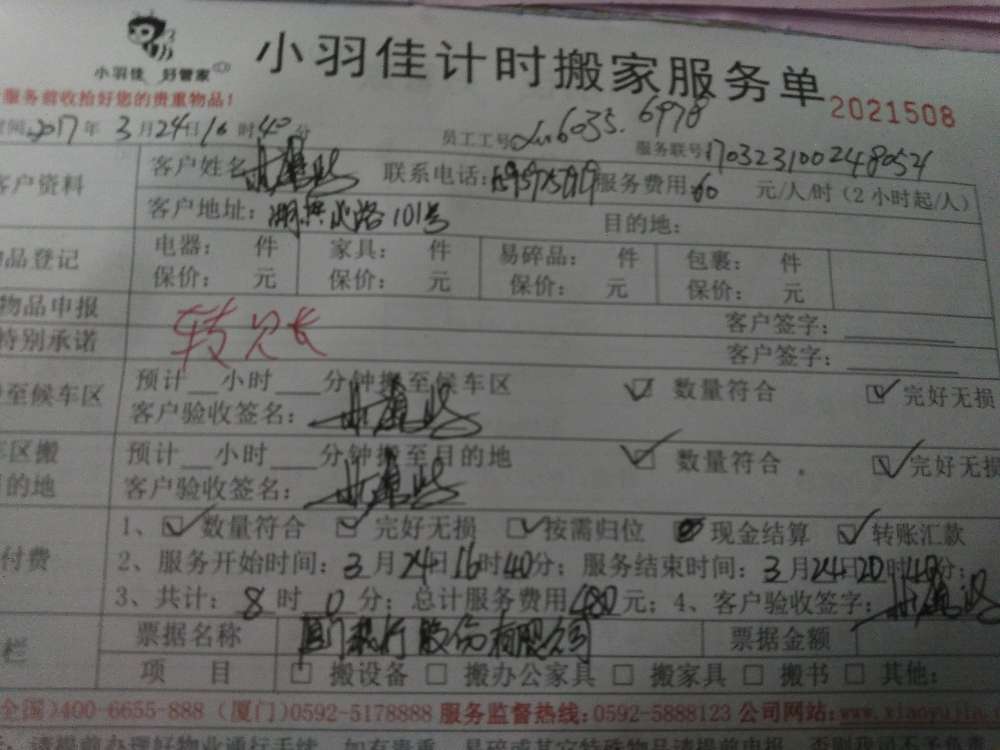 小羽佳 好管家
小羽佳计时搬家服务单
2021508
服务前收拾好您的贵重物品!
2017年3月24日16时40分
员工工号 6035.6978
服务联号 1703231002248052
客户资料
客户姓名
联系电话:
服务费用:60元/人/时(2小时起/人)
客户地址: 路101号
目的地:
品登记
电器: 件
家具: 件
易碎品: 件
包裹: 件
保价: 元
保价: 元
保价: 元
保价: 元
物品申报
转账
客户签字:
特别承诺
客户签字:
至候车区
预计__小时___分钟搬至候车区
数量符合
完好无损
客户验收签名:
区搬
的地
预计__小时___分钟搬至目的地
数量符合
完好无损
客户验收签名:
付费
1、数量符合 完好无损 按需归位 现金结算 转账汇款
2、服务开始时间:3月24日16时40分;服务结束时间:3月24日20时40分;
3、共计:8时0分;总计服务费用480元;4、客户验收签字:
栏
票据名称
厦门银行股份有限公司
票据金额
项 目
搬设备 搬办公家具 搬家具 搬书 其他:
全国)400-6655-888 (厦门)0592-5178888 服务监督热线:0592-5888123 公司网站:www.xiaoyujia